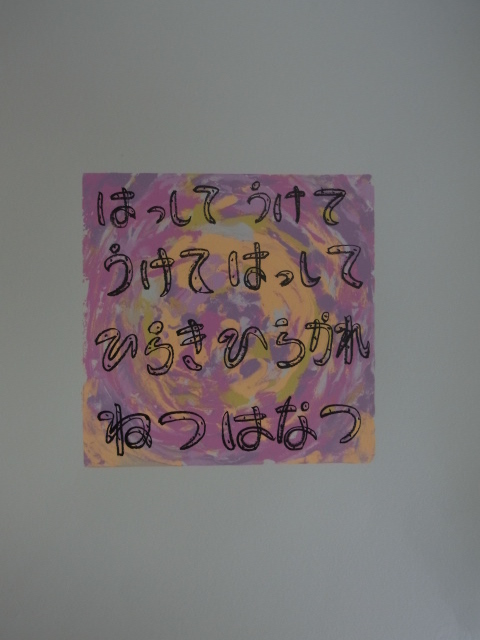 はっして うけて
うけて はっして
ひらき ひらかれ
ねつ はなつ